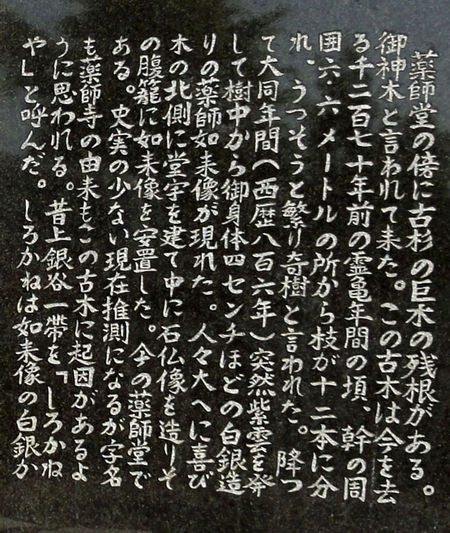 薬師堂の傍に古杉の巨木の残根がある。
御神木と言われて来た。この古木は今を去
る千二百七十年前の霊亀年間の頃、幹の周
囲六・六メートルの所から枝が十二本に分
れ、うつそうと繁り奇樹と言われた。 降つ
て大同年間(西歴八百六年)突然紫雲を発
して樹中から御身体四センチほどの白銀造
りの薬師如来像が現れた。人々大へに喜び
木の北側に堂宇を建て中に石仏像を造りそ
の腹籠に如来像を安置した。今の薬師堂で
ある。史実の少ない現在推測になるが字名
も薬師寺の由来もこの古木に起因があるよ
うに思われる。昔上銀谷一帯を「しろかね
や」と呼んだ。しろかねは如来像の白銀か